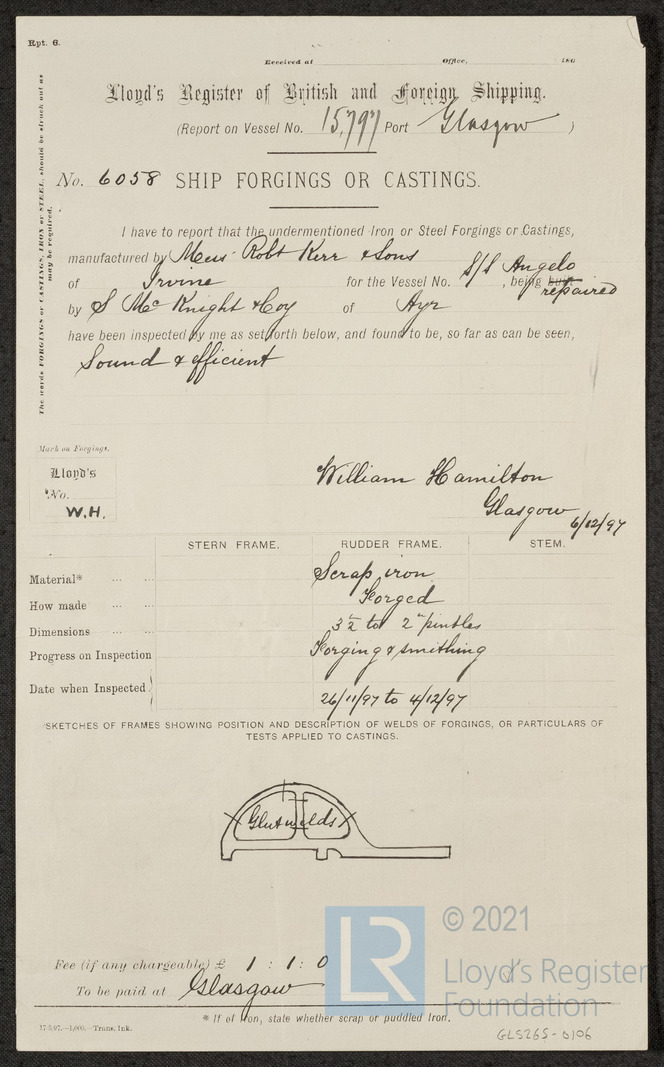 Rpt. 6.
Received at Office, 189
Lloyd's Register of British and Foreign Shipping.
(Report on Vessel No. 15,797 Port Glasgow )
No. 6058 SHIP FORGINGS OR CASTINGS.
The words FORGINGS or CASTINGS, IRON or STEEL, should be struck out as
may be required.
I have to report that the undermentioned Iron or Steel Forgings or Castings,
manufactured by Messrs Robt Kerr & Sons
of Irvine for the Vessel No. S/S Angelo, being built repaired
by S McKnight & Coy of Ayr
have been inspected by me as set forth below, and found to be, so far as can be seen,
Sound & efficient
Mark on Forgings.
Lloyd's
No.
W.H.
William Hamilton
Glasgow 6/12/97
STERN FRAME. RUDDER FRAME. STEM.
Material* Scrap iron
How made Forged
Dimensions 3½ to 2" pintles
Progress on Inspection Forging & smithing
Date when Inspected 26/11/97 to 4/12/97
SKETCHES OF FRAMES SHOWING POSITION AND DESCRIPTION OF WELDS OF FORGINGS, OR PARTICULARS OF
TESTS APPLIED TO CASTINGS.
Glut welds
Fee (if any chargeable) £ 1 : 1 : 0
To be paid at Glasgow
* If of Iron, state whether scrap or puddled Iron.
17.5.97.—1,000.—Trans. Ink.
LR
© 2021
Lloyd's Register
Foundation
GLS265-0106